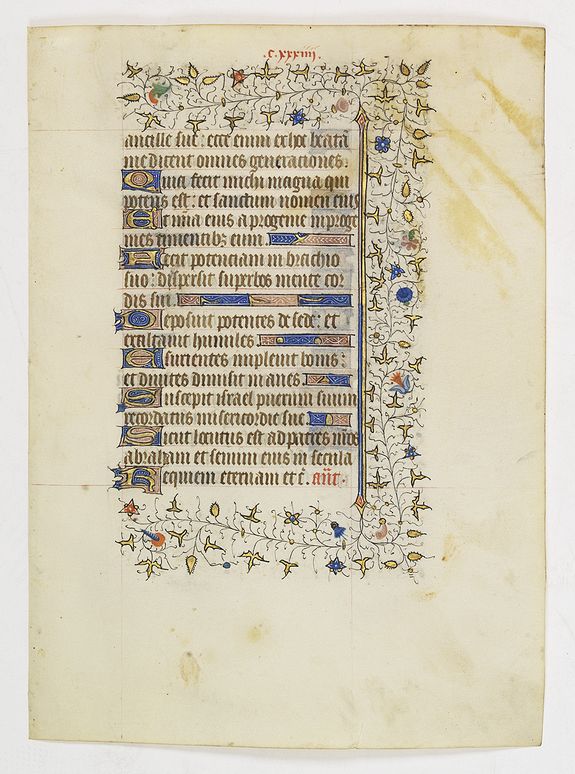 .c.xxxiiij.
ancille sue: ecce enim ex hoc beatā
me dicent omnes generaciones.
Quia fecit michi magna qui
potens est: et sanctum nomen eius
Et mīa eius a progenie in proge
nies timentibz eum.
Fecit potenciam in brachio
suo: dispersit superbos mente cor
dis sui
Deposuit potentes de sede: et
exaltauit humiles
Esurientes impleuit bonis:
et diuites dimisit inanes
Suscepit israel puerum suum
recordatus misericordie sue.
Sicut locutus est ad patres nr̄os
abraham et semini eius in secula
Requiem eternam et c̄. ant̄.